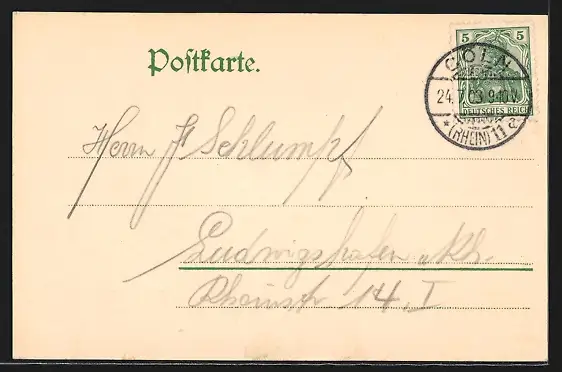 Postkarte.
5 5
DEUTSCHES REICH
CÖLN
24.7.03. 9-10 V.
* (RHEIN) 11 d
Herrn F Schlumpf
Ludwigshafen a/Rh.
Rheinstr 14. I